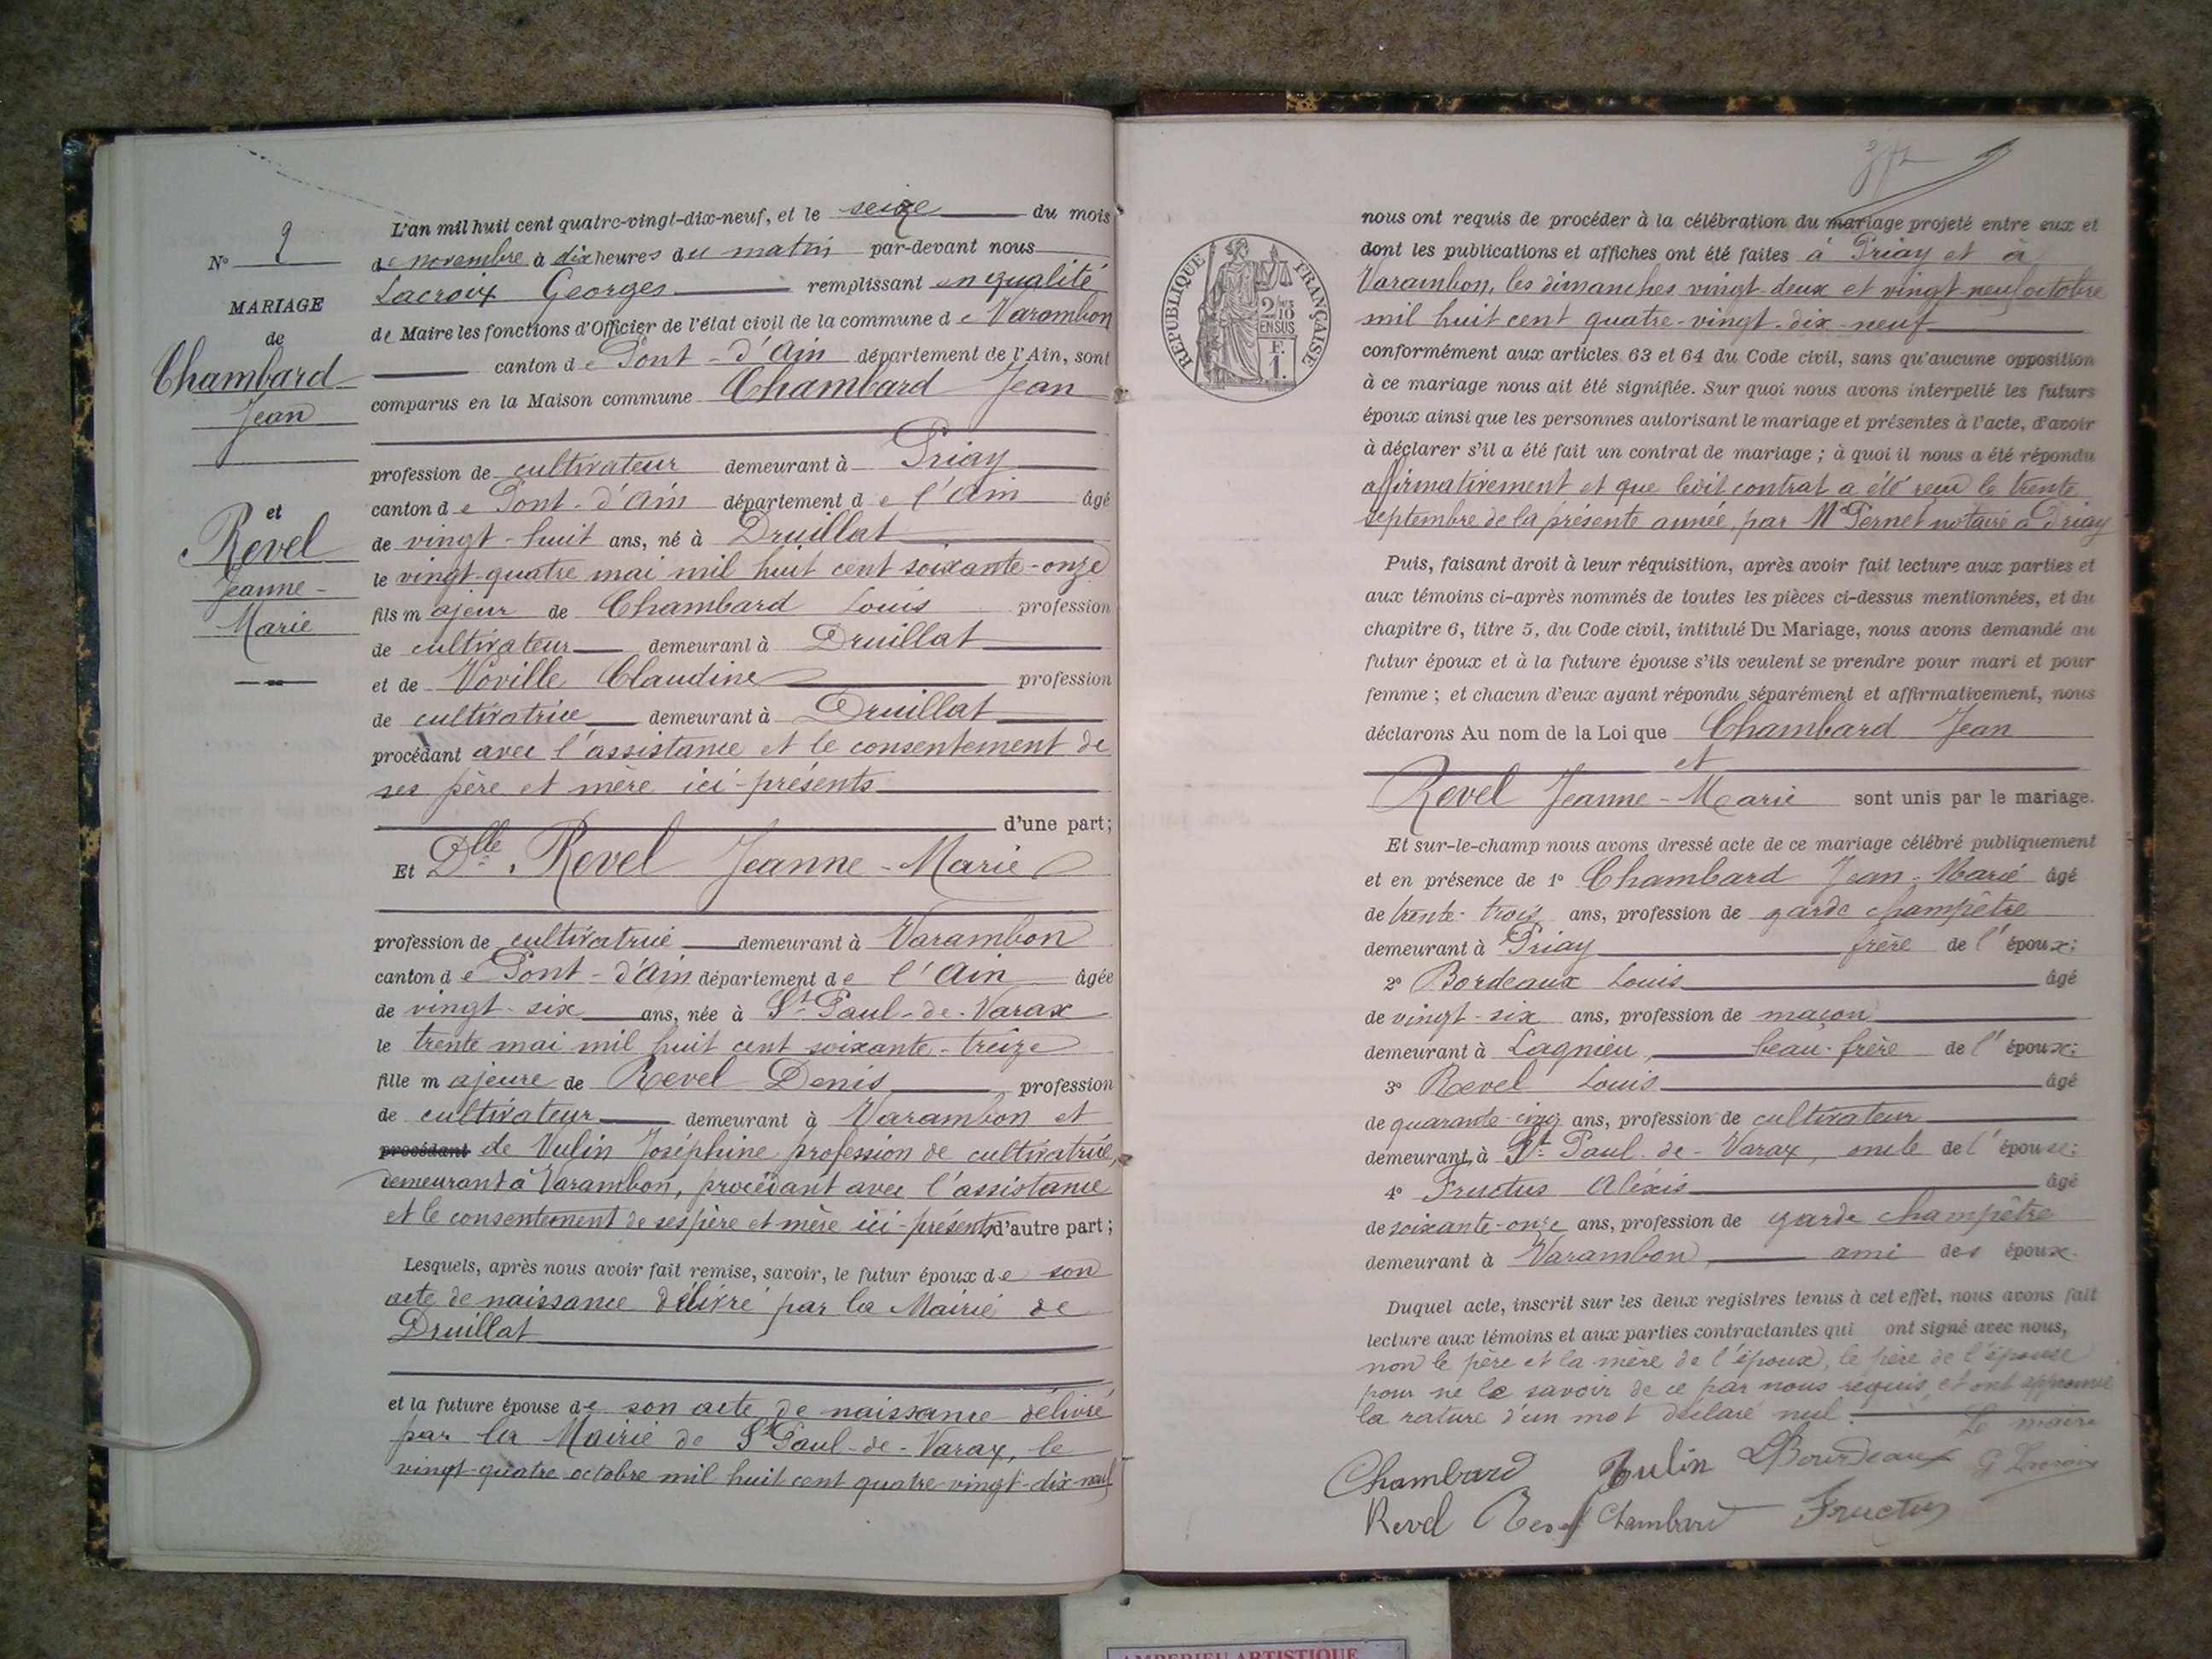 N° 2
MARIAGE
de
Chambard
Jean
et
Revel
Jeanne-
Marie
L'an mil huit cent quatre-vingt-dix-neuf, et le seize du mois
de novembre à dix heures du matin par-devant nous
Lacroix Georges remplissant en qualité
de Maire les fonctions d'Officier de l'état civil de la commune de Varambon
canton de Pont-d'Ain département de l'Ain, sont
comparus en la Maison commune Chambard Jean
profession de cultivateur demeurant à Priay
canton de Pont-d'Ain département de l'Ain âgé
de vingt-huit ans, né à Druillat
le vingt-quatre mai mil huit cent soixante-onze
fils majeur de Chambard Louis profession
de cultivateur demeurant à Druillat
et de Voville Claudine profession
de cultivatrice demeurant à Druillat
procédant avec l'assistance et le consentement de
ses père et mère ici-présents
d'une part;
Et Dlle. Revel Jeanne-Marie
profession de cultivatrice demeurant à Varambon
canton de Pont-d'Ain département de l'Ain âgée
de vingt-six ans, née à St-Paul-de-Varax
le trente mai mil huit cent soixante-treize
fille majeure de Revel Denis profession
de cultivateur demeurant à Varambon et
procédant de Vulin Joséphine profession de cultivatrice,
demeurant à Varambon, procédant avec l'assistance
et le consentement de ses père et mère ici-présents d'autre part;
Lesquels, après nous avoir fait remise, savoir, le futur époux de son
acte de naissance délivré par la Mairie de
Druillat
et la future épouse de son acte de naissance délivré
par la Mairie de St Paul-de-Varax, le
vingt-quatre octobre mil huit cent quatre-vingt-dix-neuf
RÉPUBLIQUE FRANÇAISE
2/10
EN SUS
F.
1.
nous ont requis de procéder à la célébration du mariage projeté entre eux et
dont les publications et affiches ont été faites à Priay et à
Varambon, les dimanches vingt-deux et vingt-neuf octobre
mil huit cent quatre-vingt-dix-neuf
conformément aux articles 63 et 64 du Code civil, sans qu'aucune opposition
à ce mariage nous ait été signifiée. Sur quoi nous avons interpellé les futurs
époux ainsi que les personnes autorisant le mariage et présentes à l'acte, d'avoir
à déclarer s'il a été fait un contrat de mariage; à quoi il nous a été répondu
affirmativement et que ledit contrat a été reçu le trente
septembre de la présente année, par Me Pernet notaire à Priay
Puis, faisant droit à leur réquisition, après avoir fait lecture aux parties et
aux témoins ci-après nommés de toutes les pièces ci-dessus mentionnées, et du
chapitre 6, titre 5, du Code civil, intitulé Du Mariage, nous avons demandé au
futur époux et à la future épouse s'ils veulent se prendre pour mari et pour
femme; et chacun d'eux ayant répondu séparément et affirmativement, nous
déclarons Au nom de la Loi que Chambard Jean
et
Revel Jeanne-Marie sont unis par le mariage.
Et sur-le-champ nous avons dressé acte de ce mariage célébré publiquement
et en présence de 1° Chambard Jean-Marie âgé
de trente-trois ans, profession de garde champêtre
demeurant à Priay frère de l'époux;
2° Bordeaux Louis âgé
de vingt-six ans, profession de maçon
demeurant à Lagnieu, beau-frère de l'époux;
3° Revel Louis âgé
de quarante-cinq ans, profession de cultivateur
demeurant à St-Paul-de-Varax, oncle de l'épouse;
4° Fructus Alexis âgé
de soixante-onze ans, profession de garde champêtre
demeurant à Varambon, ami des époux.
Duquel acte, inscrit sur les deux registres tenus à cet effet, nous avons fait
lecture aux témoins et aux parties contractantes qui ont signé avec nous,
non le père et la mère de l'époux, le père de l'épouse
pour ne le savoir de ce par nous requis, et ont approuvé
la rature d'un mot déclaré nul.
Le maire
Chambard Vulin LBourdeaux G Lacroix
Revel Revel Chambard Fructus
AMPERIEU ARTISTIQUE